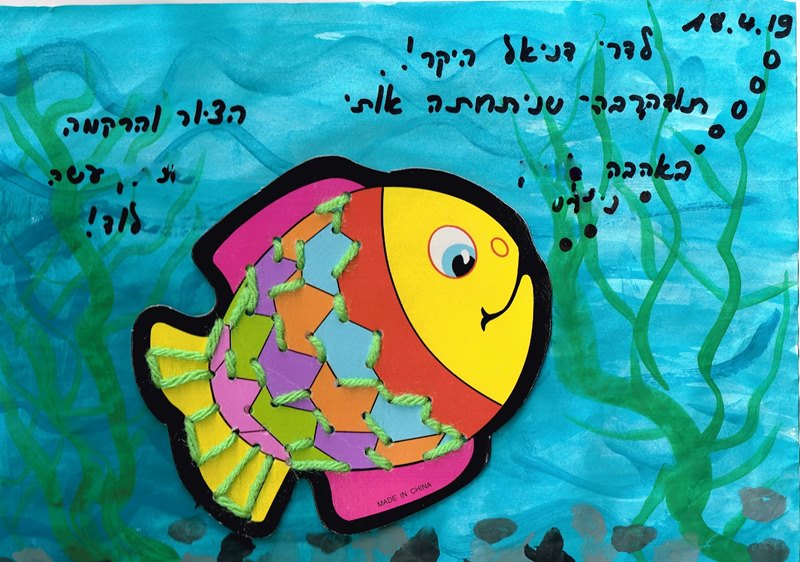 18.4.19
לדרי דניאל היקר!
תודהרבה שניתחתה אותי
באהבה
הציור והרקמה
עשה
לוד!
MADE IN CHINA